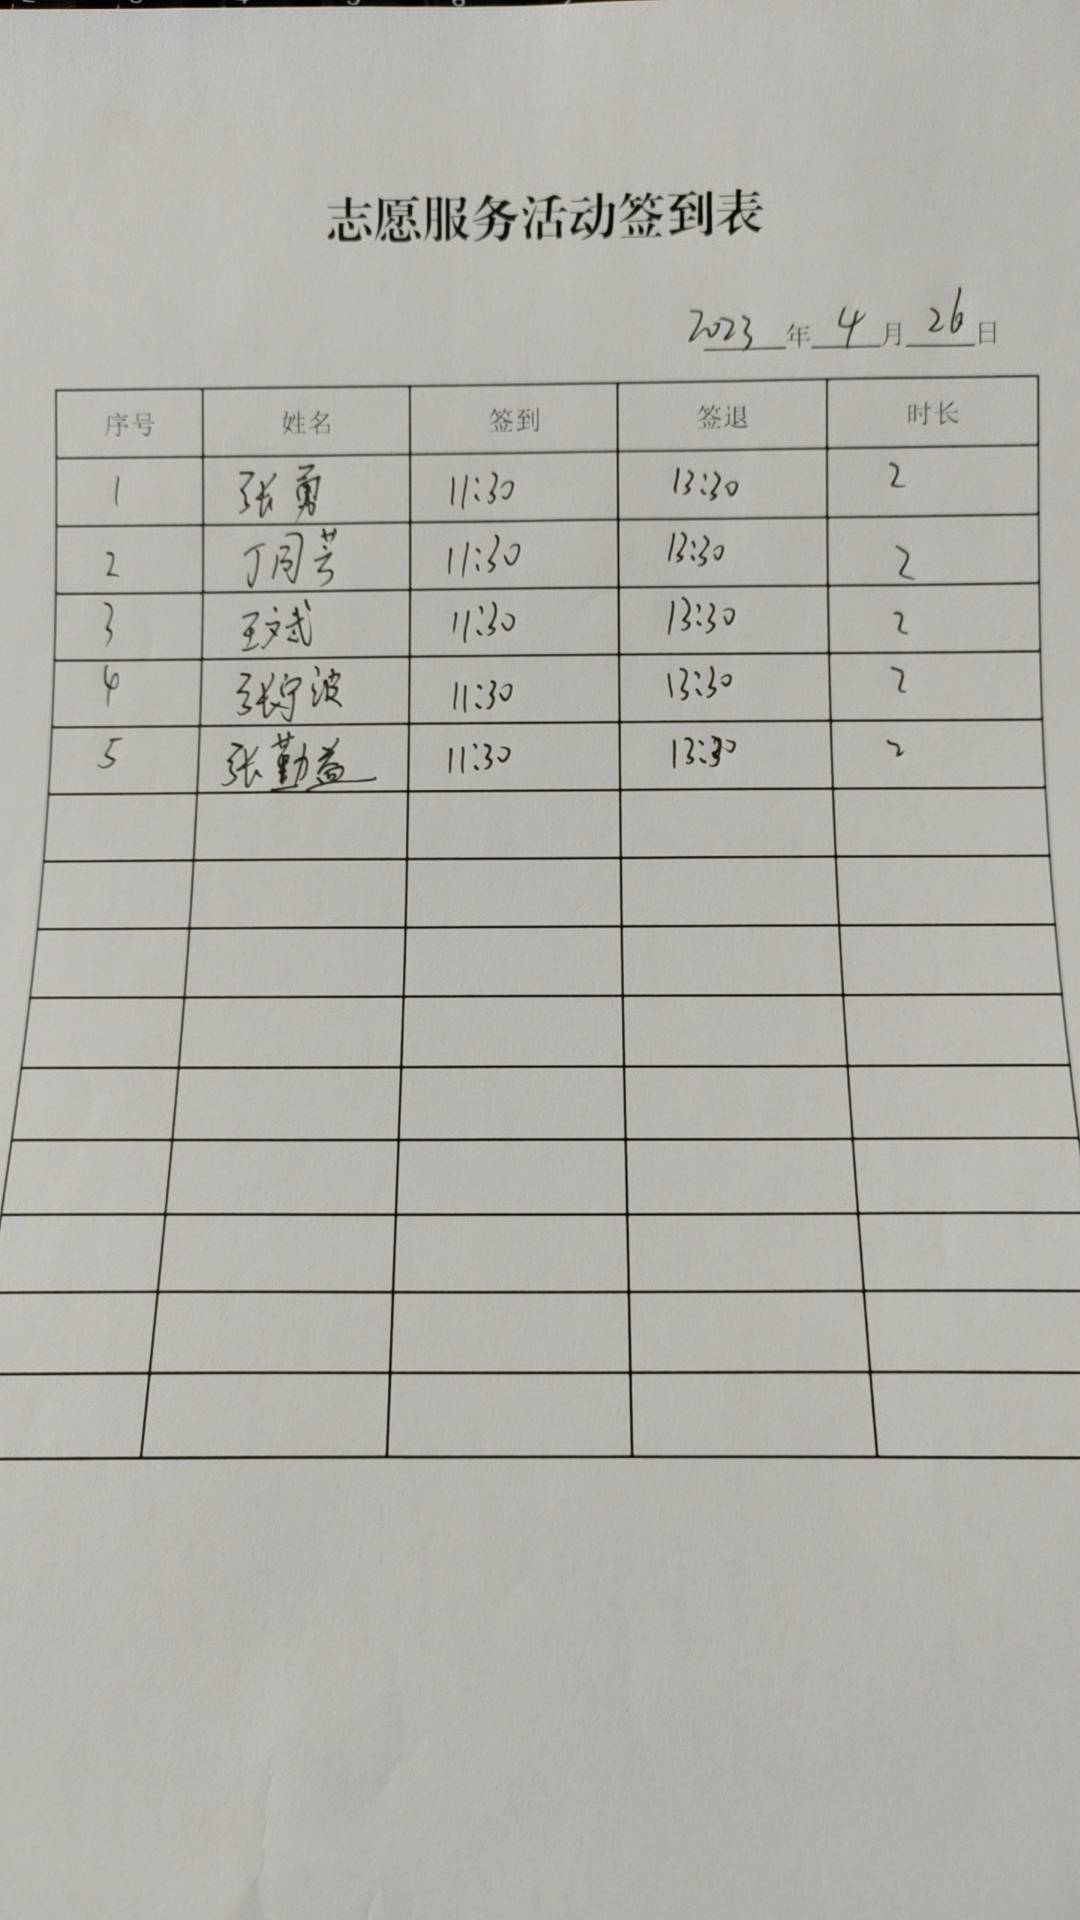 志愿服务活动签到表
2023年4月26日
序号 姓名 签到 签退 时长
1 张勇 11:30 13:30 2
2 丁同芳 11:30 13:30 2
3 王文武 11:30 13:30 2
4 张宁波 11:30 13:30 2
5 张勤益 11:30 13:30 2